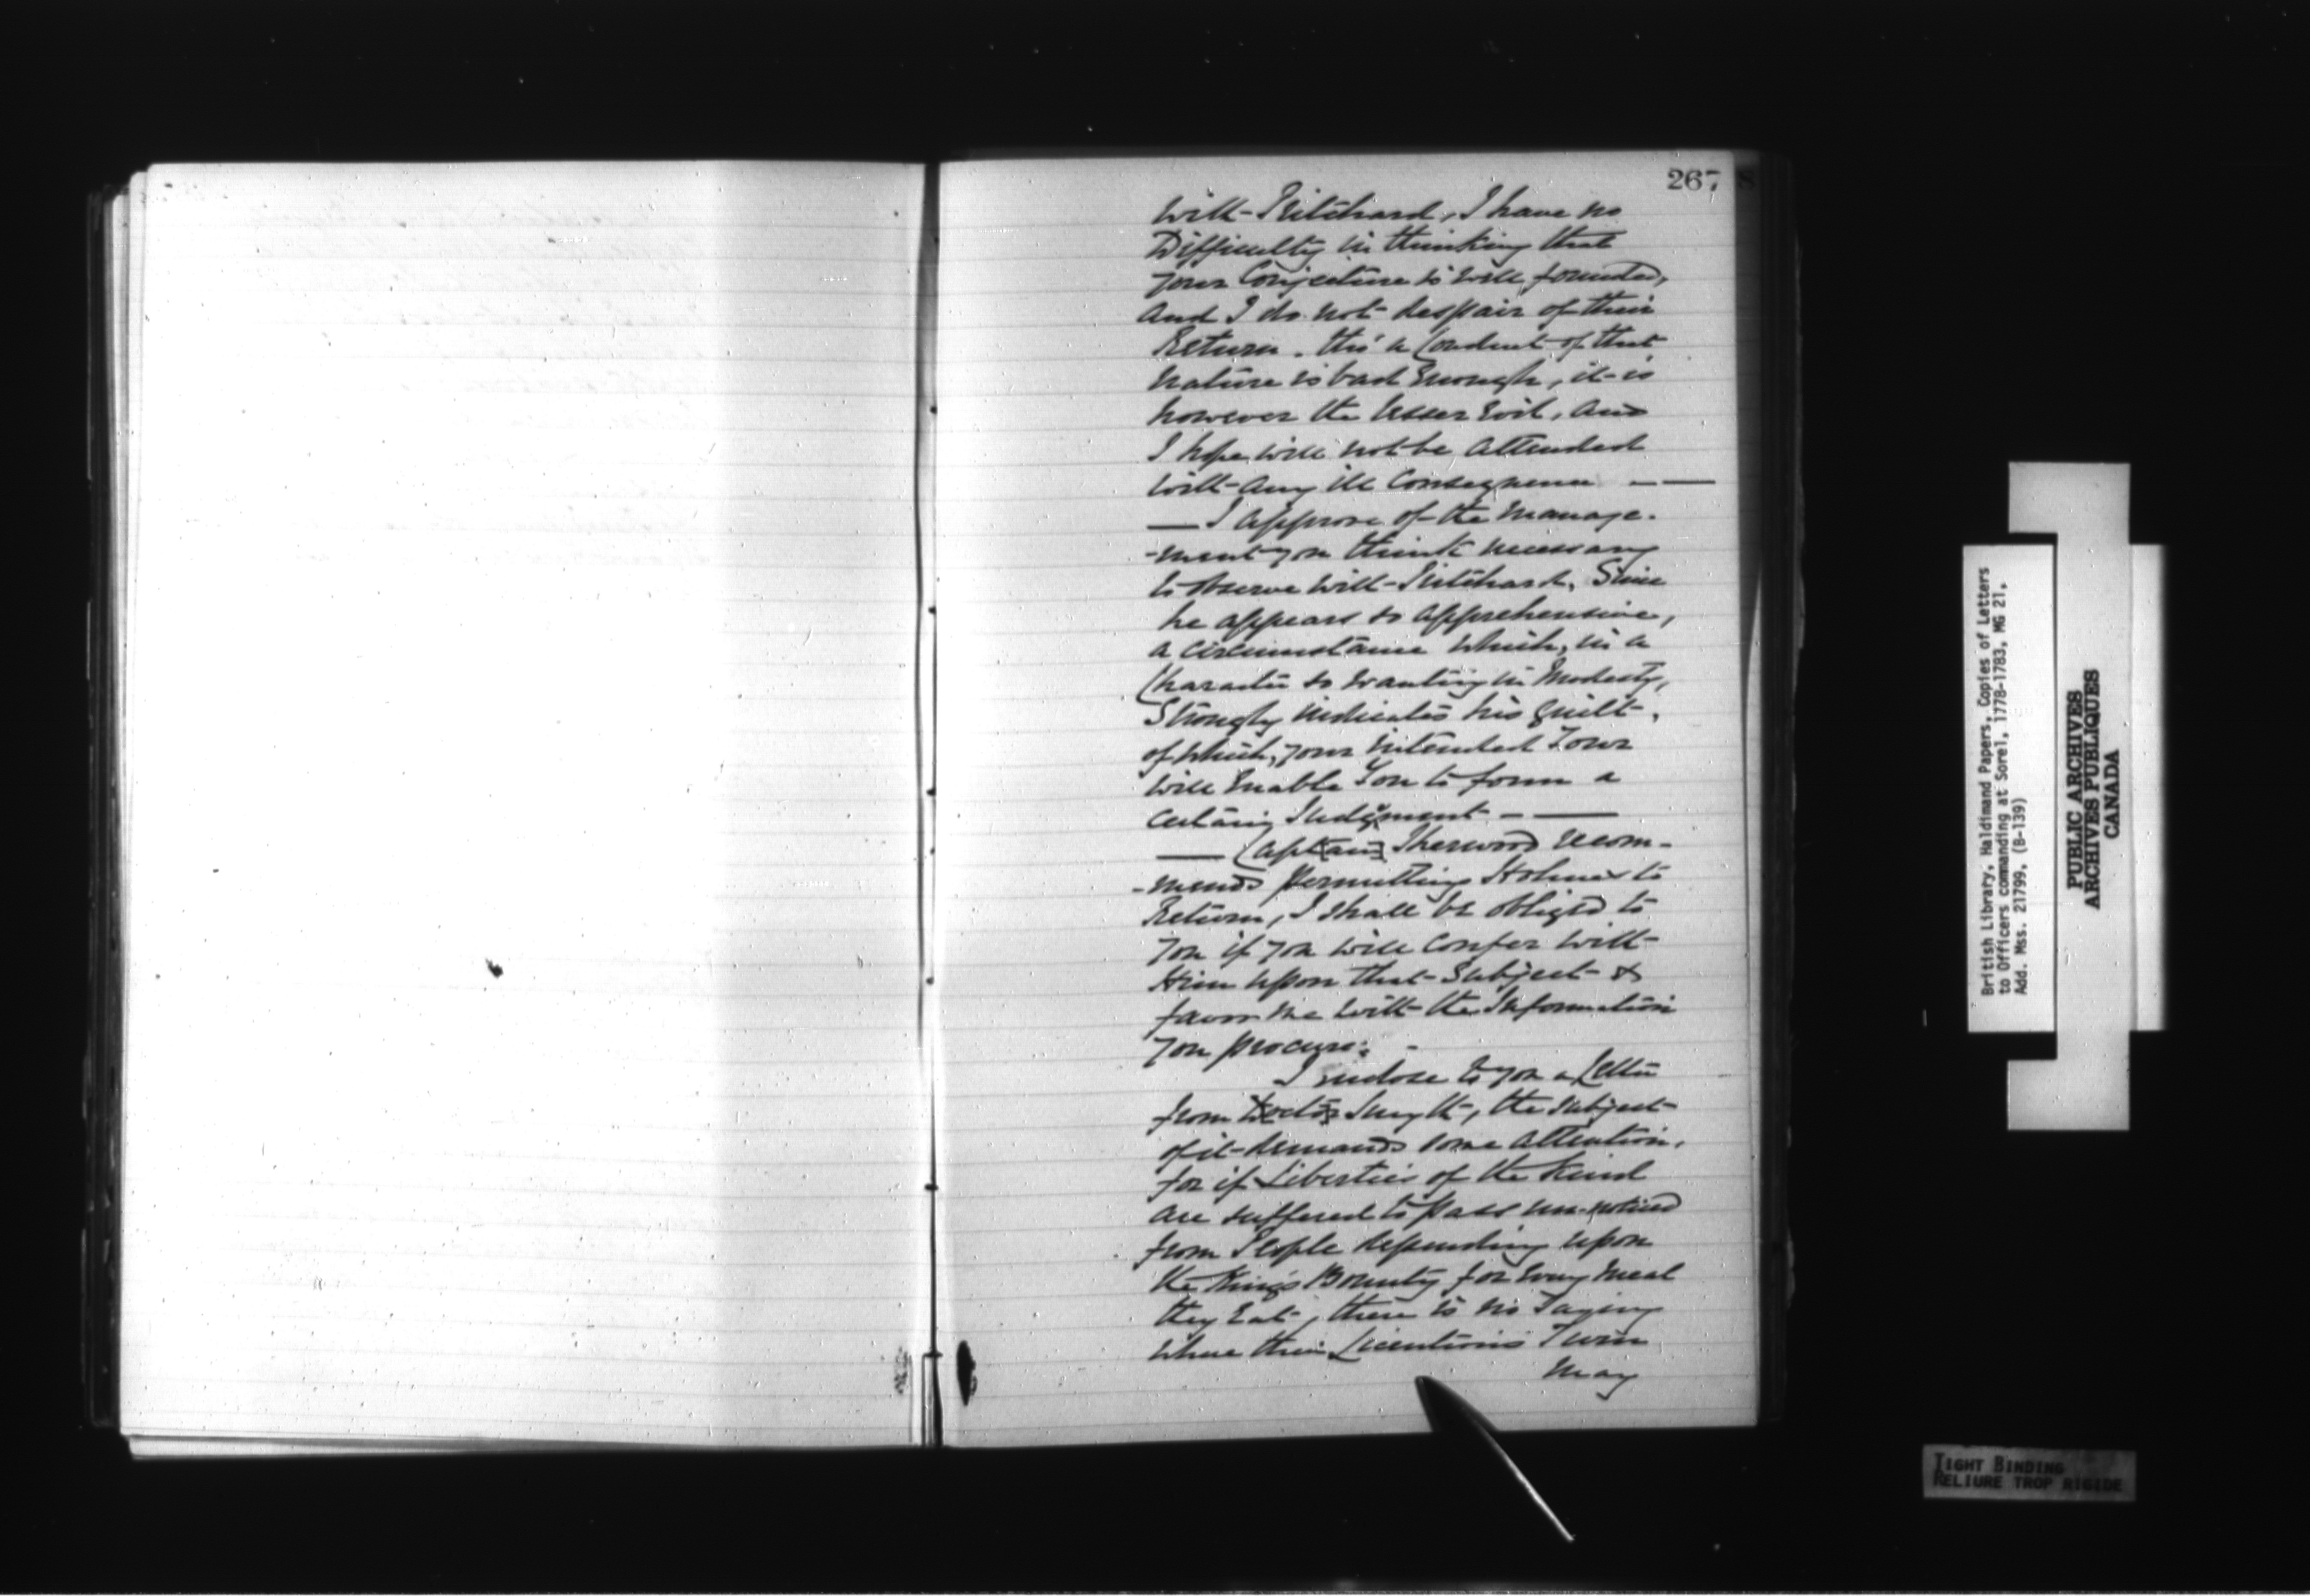 267
with Pritchard, I have no
Difficulty in thinking that
your Conjecture is well founded,
and I do not despair of their
Return. tho' a Conduct of that
nature is bad Enough, it is
however the lesser Evil, and
I hope will not be attended
with any ill Consequence — —
— I approve of the manage-
-ment you think necessary
to observe with Pritchard, Since
he appears so apprehensive,
a circumstance which, in a
Character so wanting in Modesty,
Strongly indicates his guilt,
of which, your intended Tour
will Enable You to form a
certain Judgment — —
— Capt[ain] Sherwood recom-
-mends permitting Holmes to
Return, I shall be obliged to
you if you will confer with
Him upon that Subject &
favor me with the Information
you procure. -
I enclose to you a Letter
from Doctor Smyth, the subject
of it demands some attention,
for if Liberties of the kind
are suffered to pass un-noticed
from People depending upon
the King's Bounty for every meal
they Eat, there is no saying
where their Licentious Turn
may
British Library, Haldimand Papers, Copies of Letters
to Officers commanding at Sorel, 1778-1783, MG 21,
Add. Mss. 21799, (B-139)
PUBLIC ARCHIVES
ARCHIVES PUBLIQUES
CANADA
TIGHT BINDING
RELIURE TROP RIGIDE